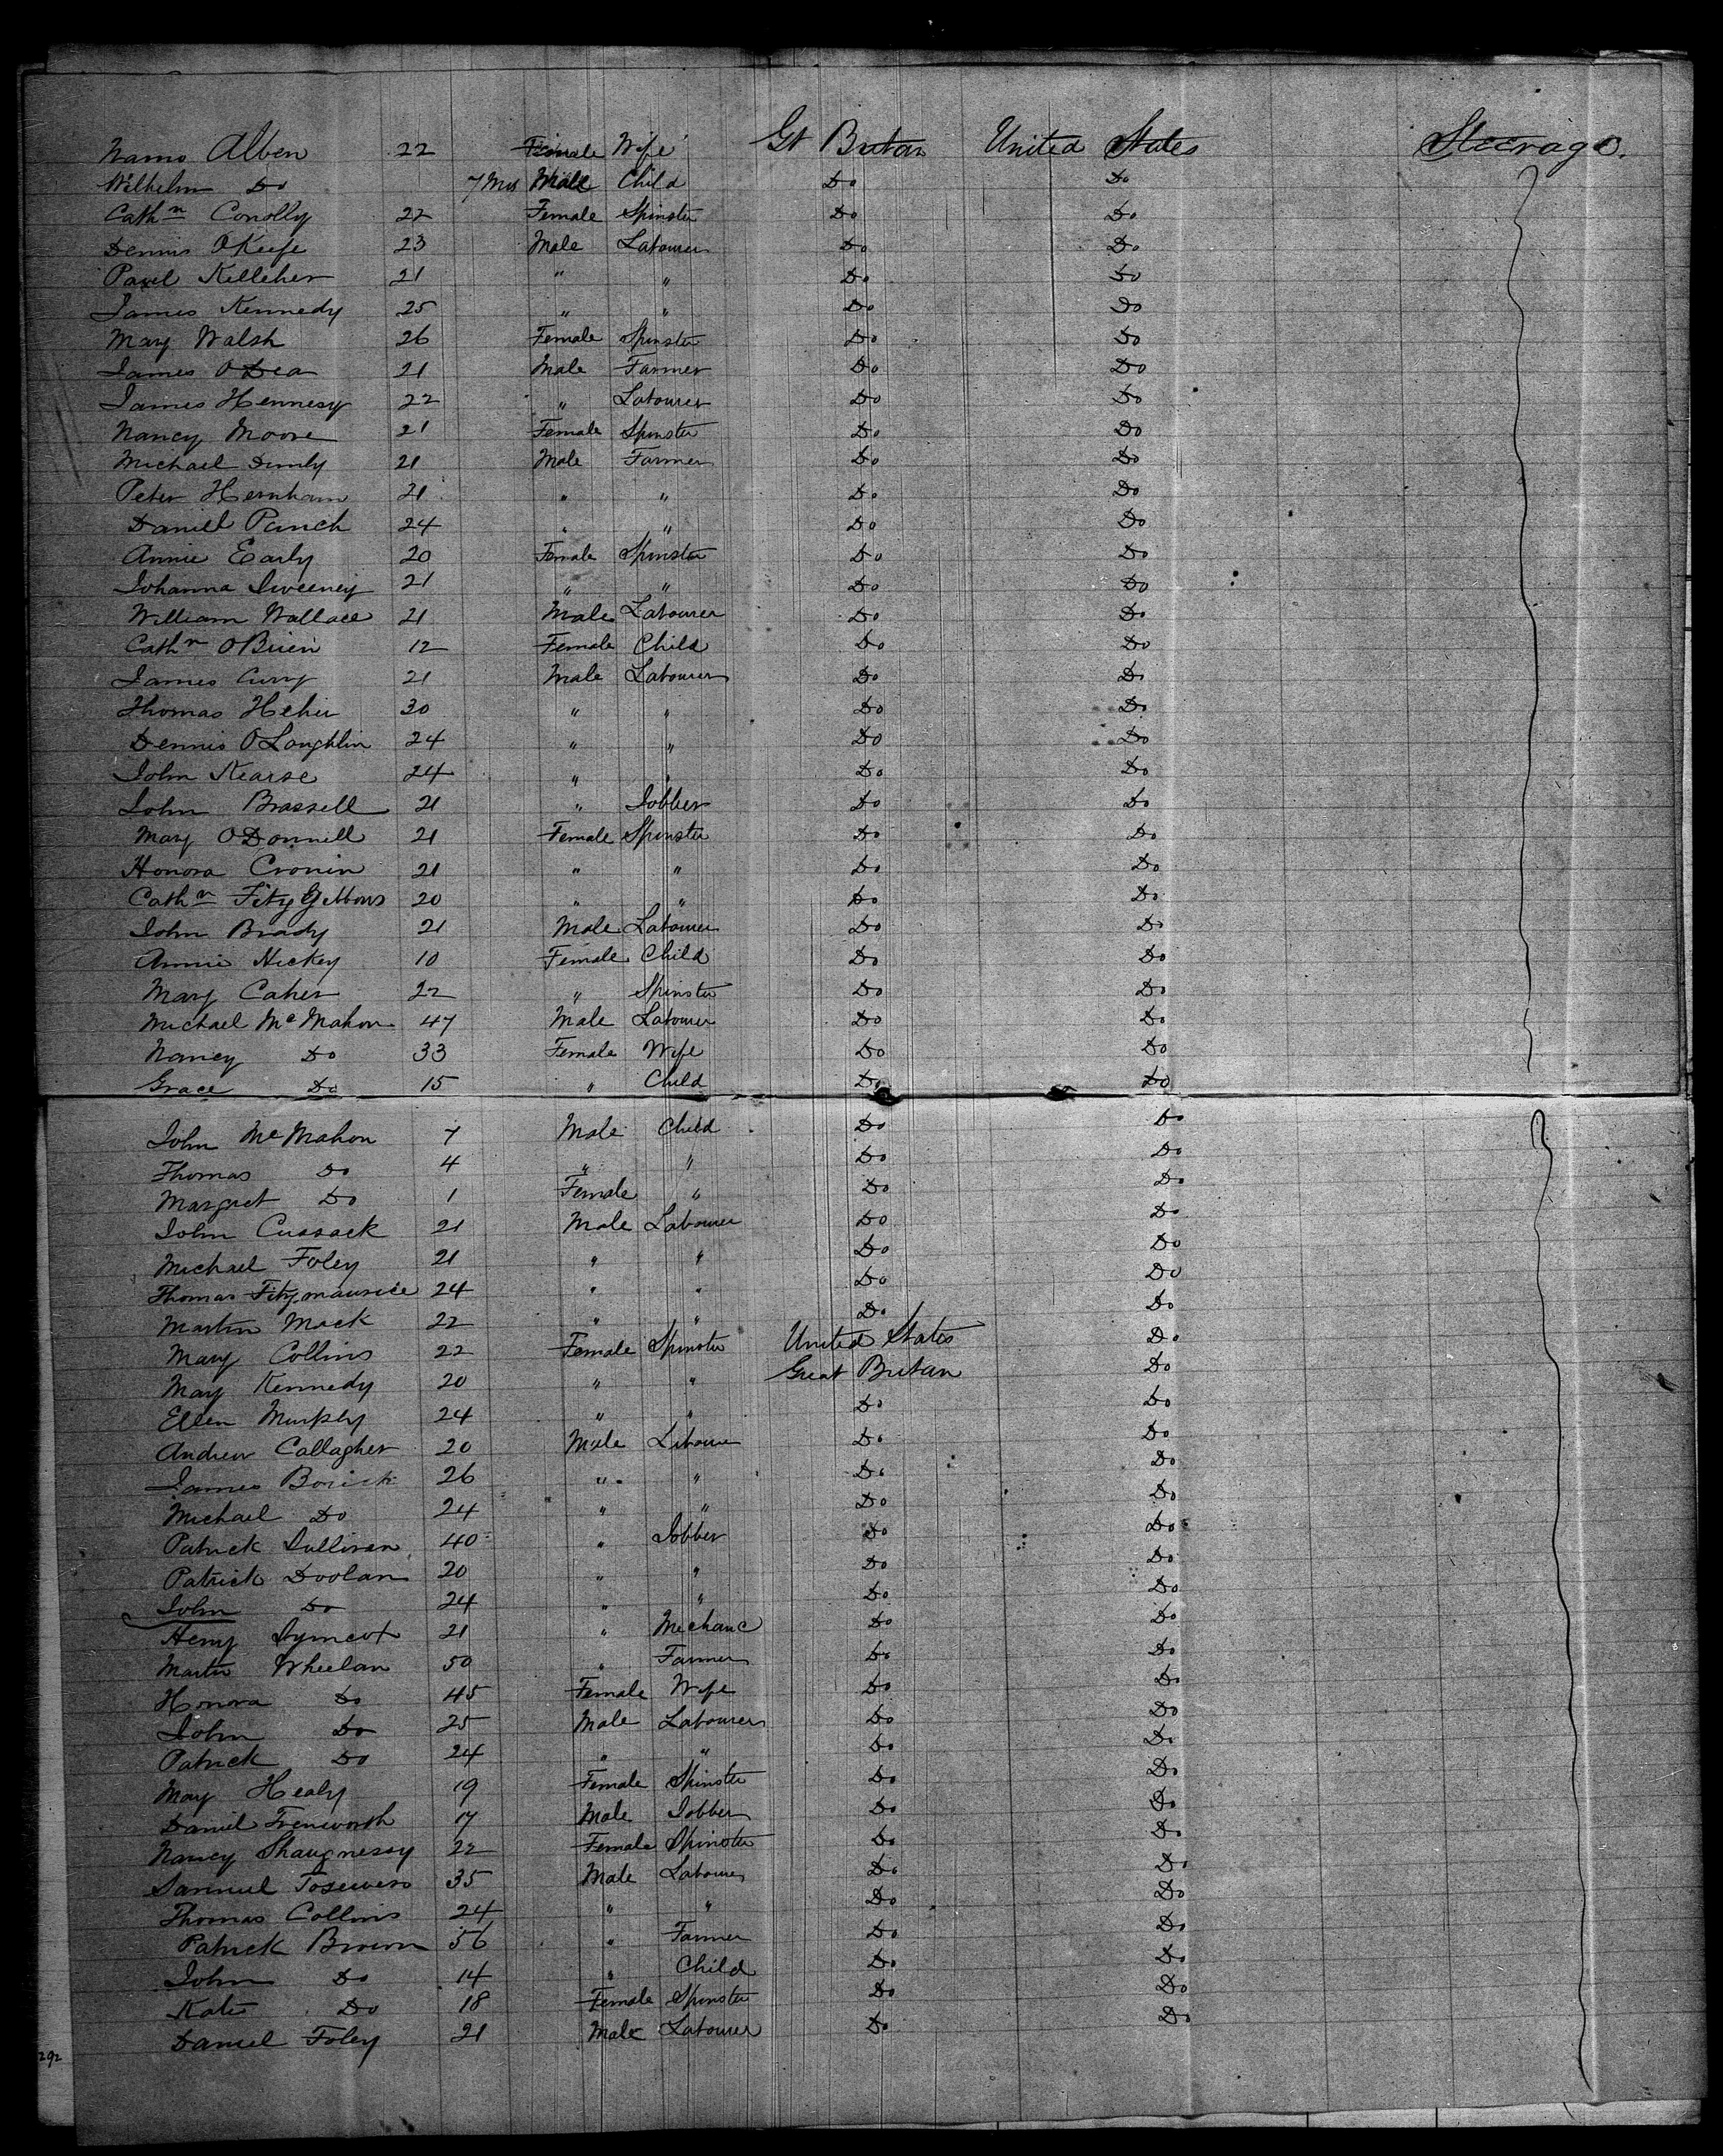 Nams Alben 22 Female Wife Gt Britan United States Steerage.
Wilhelm Do 7 Mos Male Child Do Do
Cathn Conolly 22 Female Spinster Do Do
Dennis OKeefe 23 Male Labourer Do Do
Paul Kelleher 21 " " Do Do
James Kennedy 25 " " Do Do
Mary Walsh 26 Female Spinster Do Do
James ODea 21 Male Farmer Do Do
James Hennesy 22 " Labourer Do Do
Nancy Moore 21 Female Spinster Do Do
Michael 21 Male Farmer Do Do
Peter Hernham 21 " " Do Do
Daniel Punch 24 " " Do Do
Annie Early 20 Female Spinster Do Do
Johanna Sweeney 21 " " Do Do
William Wallace 21 Male Labourer Do Do
Cathn OBrien 12 Female Child Do Do
James Curry 21 Male Labourer Do Do
Thomas Hehir 30 " " Do Do
Dennis OLoughlin 24 " " Do Do
John Kearse 24 " " Do Do
John Brassell 21 " Jobber Do Do
Mary ODonnell 21 Female Spinster Do Do
Honora Cronin 21 " " Do Do
Cathn FitzGibbons 20 " " Do Do
John Brady 21 Male Labourer Do Do
Annie Hickey 10 Female Child Do Do
Mary Caher 22 " Spinster Do Do
Michael McMahon 47 Male Labourer Do Do
Nancy Do 33 Female Wife Do Do
Grace Do 15 " Child Do Do
John McMahon 7 Male Child Do Do
Thomas Do 4 " " Do Do
Margret Do 1 Female " Do Do
John Cussack 21 Male Labourer Do Do
Michael Foley 21 " " Do Do
Thomas Fitzmaurice 24 " " Do Do
Martin Mack 22 " " Do Do
Mary Collins 22 Female Spinster United States Do
Mary Kennedy 20 " " Great Britan Do
Ellen Murphy 24 " " Do Do
Andrew Callagher 20 Male Labourer Do Do
James Borick 26 " " Do Do
Michael Do 24 " " Do Do
Patrick Sullivan 40 " Jobber Do Do
Patrick Doolan 20 " " Do Do
John Do 24 " " Do Do
Henry 21 " Mechanc Do Do
Martin Wheelan 50 " Farmer Do Do
Honora Do 45 Female Wife Do Do
John Do 25 Male Labourer Do Do
Patrick Do 24 " " Do Do
Mary Healy 19 Female Spinster Do Do
Daniel Trenworth 17 Male Jobber Do Do
Nancy Shaugnessy 22 Female Spinster Do Do
Samuel 35 Male Labourer Do Do
Thomas Collins 24 " " Do Do
Patrick Brown 56 " Farmer Do Do
John Do 14 " Child Do Do
Kate Do 18 Female Spinster Do Do
Daniel Foley 21 Male Labourer Do Do
292